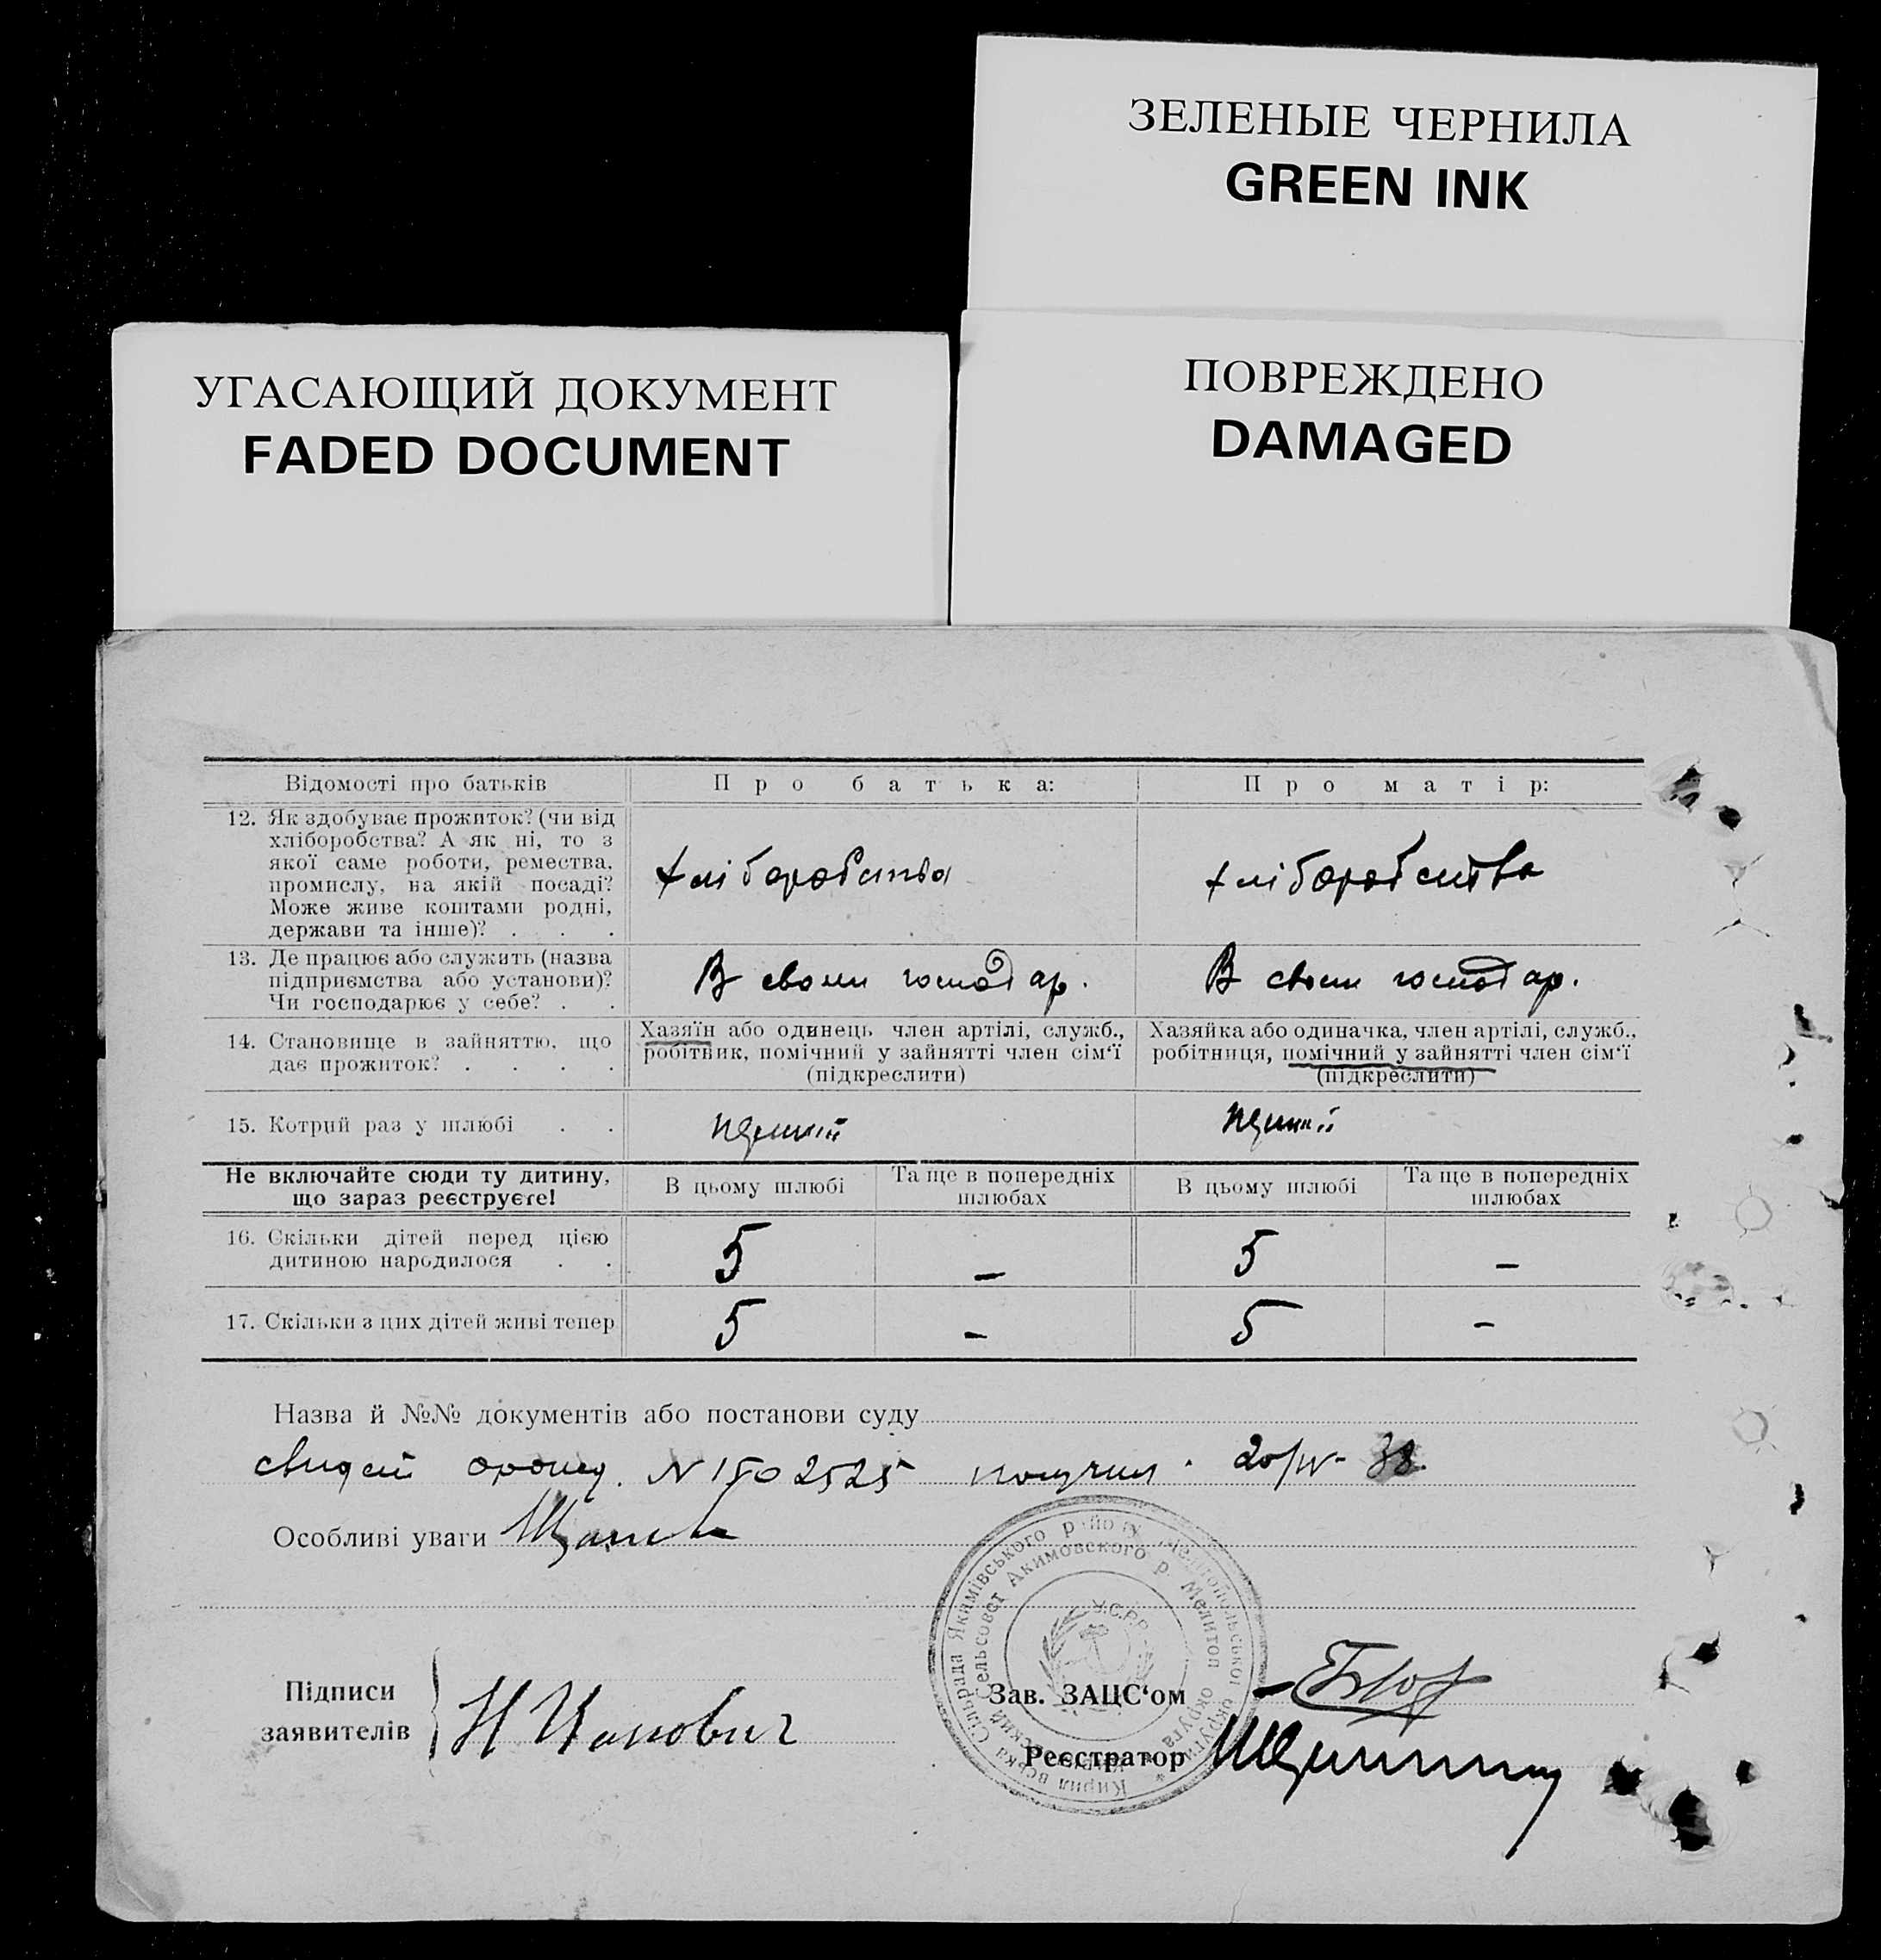 ЗЕЛЕНЫЕ ЧЕРНИЛА
GREEN INK
УГАСАЮЩИЙ ДОКУМЕНТ
FADED DOCUMENT
ПОВРЕЖДЕНО
DAMAGED
Відомості про батьків
Про батька:
Про матір:
12. Як здобуває прожиток? (чи від
хліборобства? А як ні, то з
якої саме роботи, ремества,
промислу, на якій посаді?
Може живе коштами родні,
держави та інше)? . . .
хліборобства
хліборобства
13. Де працює або служить (назва
підприємства або установи)?
Чи господарює у себе? . .
В своми господар.
В свом господар.
14. Становище в зайняттю, що
дає прожиток? . . . .
Хазяїн або одинець член артілі, служб.,
робітник, помічний у зайнятті член сім‘ї
(підкреслити)
Хазяйка або одиначка, член артілі, служб.,
робітниця, помічний у зайнятті член сім‘ї
(підкреслити)
15. Котрий раз у шлюбі . .
Не включайте сюди ту дитину,
що зараз реєструєте!
В цьому шлюбі
Та ще в попередніх
шлюбах
В цьому шлюбі
Та ще в попередніх
шлюбах
16. Скільки дітей перед цією
дитиною народилося . .
5 – 5 –
17. Скільки з цих дітей живі тепер
5 – 5 –
Назва й №№ документів або постанови суду
N 1502525 получил. 20/IV-38.
Особливі уваги
Кирилівська Сільрада Якимівського району Мелітопольської округи
Сельсовет Акимовского р. Мелитоп округа
У.С.Р.Р.
Підписи
заявителів
Зав. ЗАЦС‘ом
Реєстратор